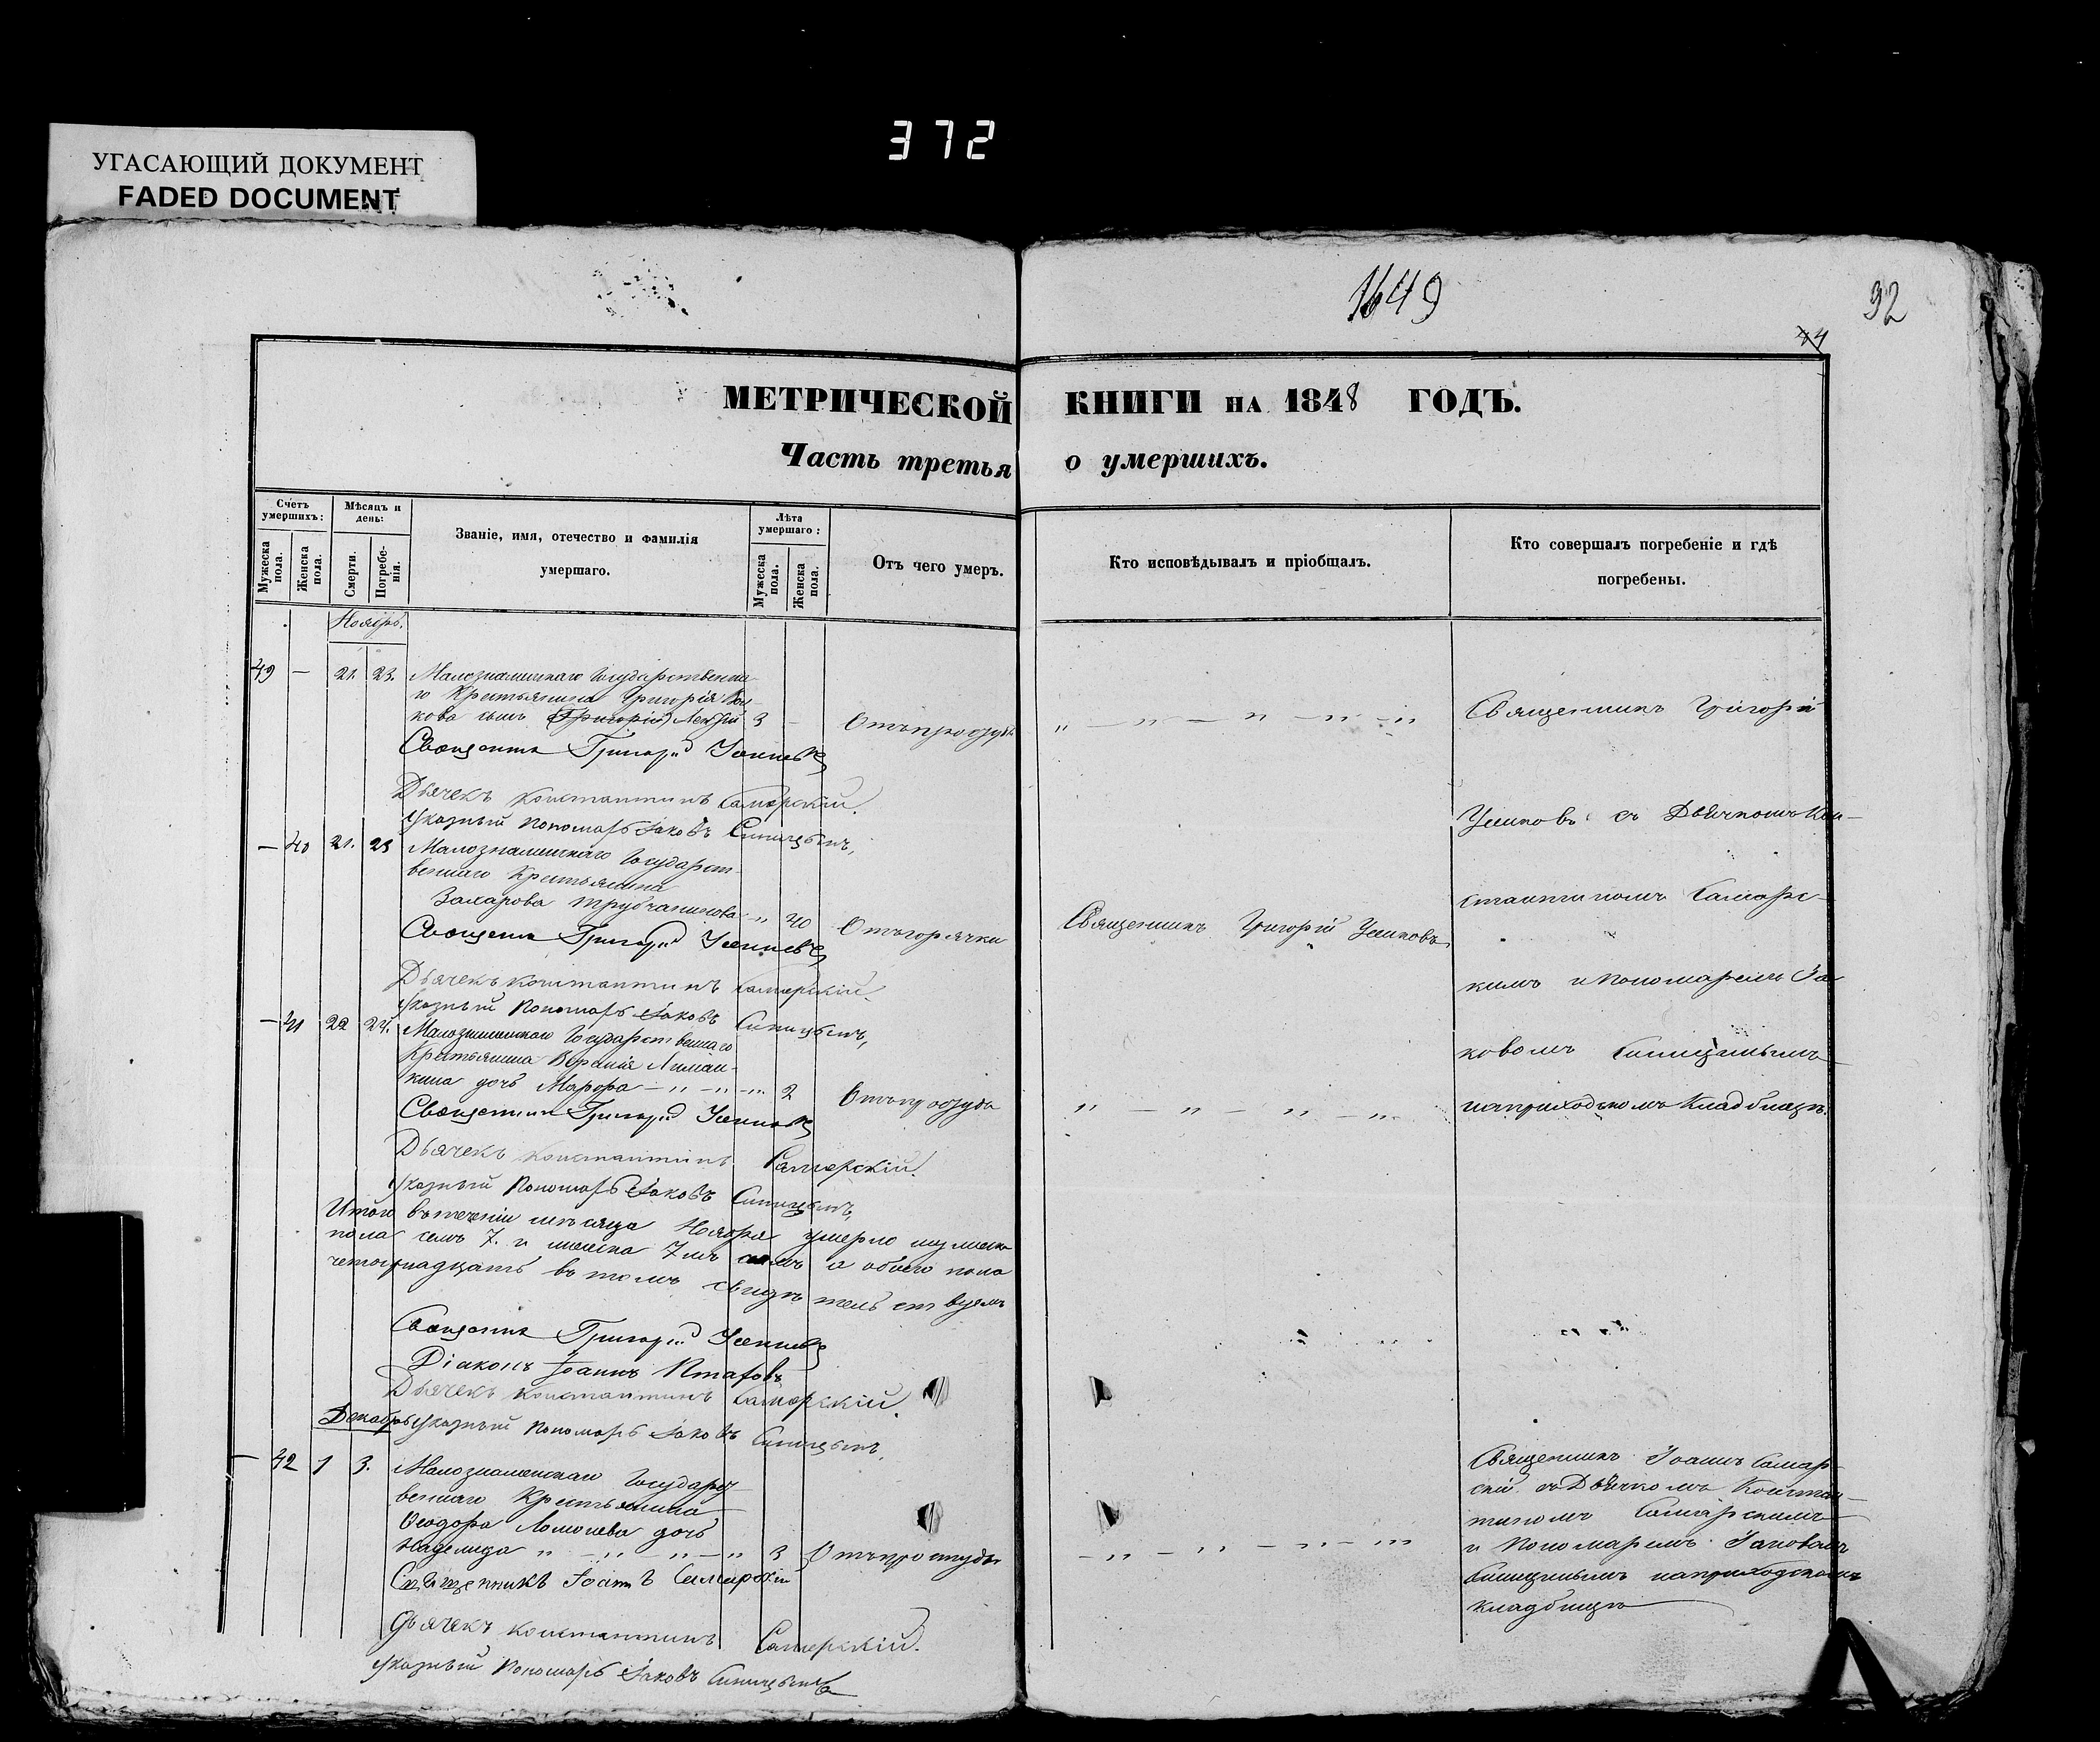 372
УГАСАЮЩИЙ ДОКУМЕНТ
FADED DOCUMENT
1649
92
МЕТРИЧЕСКОЙ КНИГИ НА 1848 ГОДЪ.
Часть третья о умершихъ.
Счетъ умершихъ:
Мѣсяцъ и день:
Званіе, имя, отечество и фамилія умершаго.
Лѣта умершаго:
Отъ чего умеръ.
Кто исповѣдывалъ и пріобщалъ.
Кто совершалъ погребеніе и гдѣ погребены.
Мужеска пола.
Женска пола.
Смерти.
Погребенія.
Мужеска пола.
Женска пола.
Ноябрь.
49 — 21. 23. Малознаменскаго Государственна-
го Крестьянина Григорія
кова сынъ 3 — Отъ простуды
Священникъ Григорій
Дьячекъ Константинъ Самарскій.
Указный Пономарь Іаковъ Синицынъ,
— 40 21. 23 Малознаменскаго Государст-
веннаго Крестьянина
Захарова " 40 Отъ горячки Священникъ Григорій
Священникъ Григорій
Дьячекъ Константинъ Самарскій.
Указный Пономарь Іаковъ Синицынъ,
— 41 22 24. Малознаменскаго Государственнаго
Крестьянина
кина дочь Марфа — " — " — " 2 Отъ простуды
Священникъ Григорій
Дьячекъ Константинъ Самарскій.
Указный Пономарь Іаковъ Синицынъ,
Итого въ теченіи мѣсяца Ноября умерло мужеска
пола семь 7. и женска 7мь семь а обоего пола
четырнадцать въ томъ свидѣтельствуемъ
Священникъ Григорій
Діаконъ Іоаннъ
Дьячекъ Константинъ Самарскій.
Указный Пономарь Іаковъ Синицынъ,
Священникъ Григорій
съ Дьячкомъ Кон-
стантиномъ Самарс-
кимъ и Пономаремъ Іа
ковомъ Синицынымъ
на приходскомъ Кладбищѣ.
Декабрь
— 42 1 3. Малознаменскаго Государст-
веннаго Крестьянина
Ѳеодора дочь
" — " — " — " 3 Отъ простуды
Священникъ Іоаннъ Самарскій
Дьячекъ Константинъ Самарскій.
Указный Пономарь Іаковъ Синицынъ
Священникъ Іоаннъ Самар-
скій съ Дьячкомъ Констан-
тиномъ Самарскимъ
и Пономаремъ Іаковомъ
Синицынымъ на приходскомъ
кладбищѣ